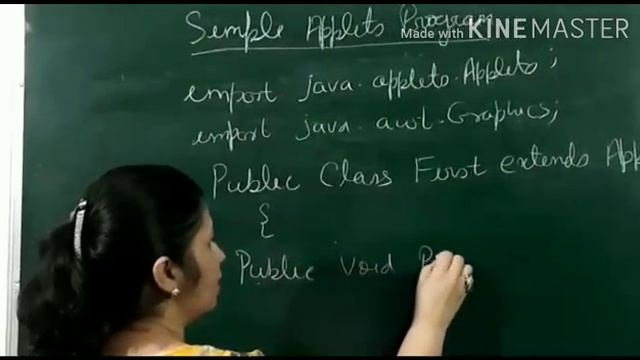 Made with KINEMASTER
Simple Applets Program
import java.applets.Applets;
import java.awt.Graphics;
Public Class First extends App
{
Public Void P